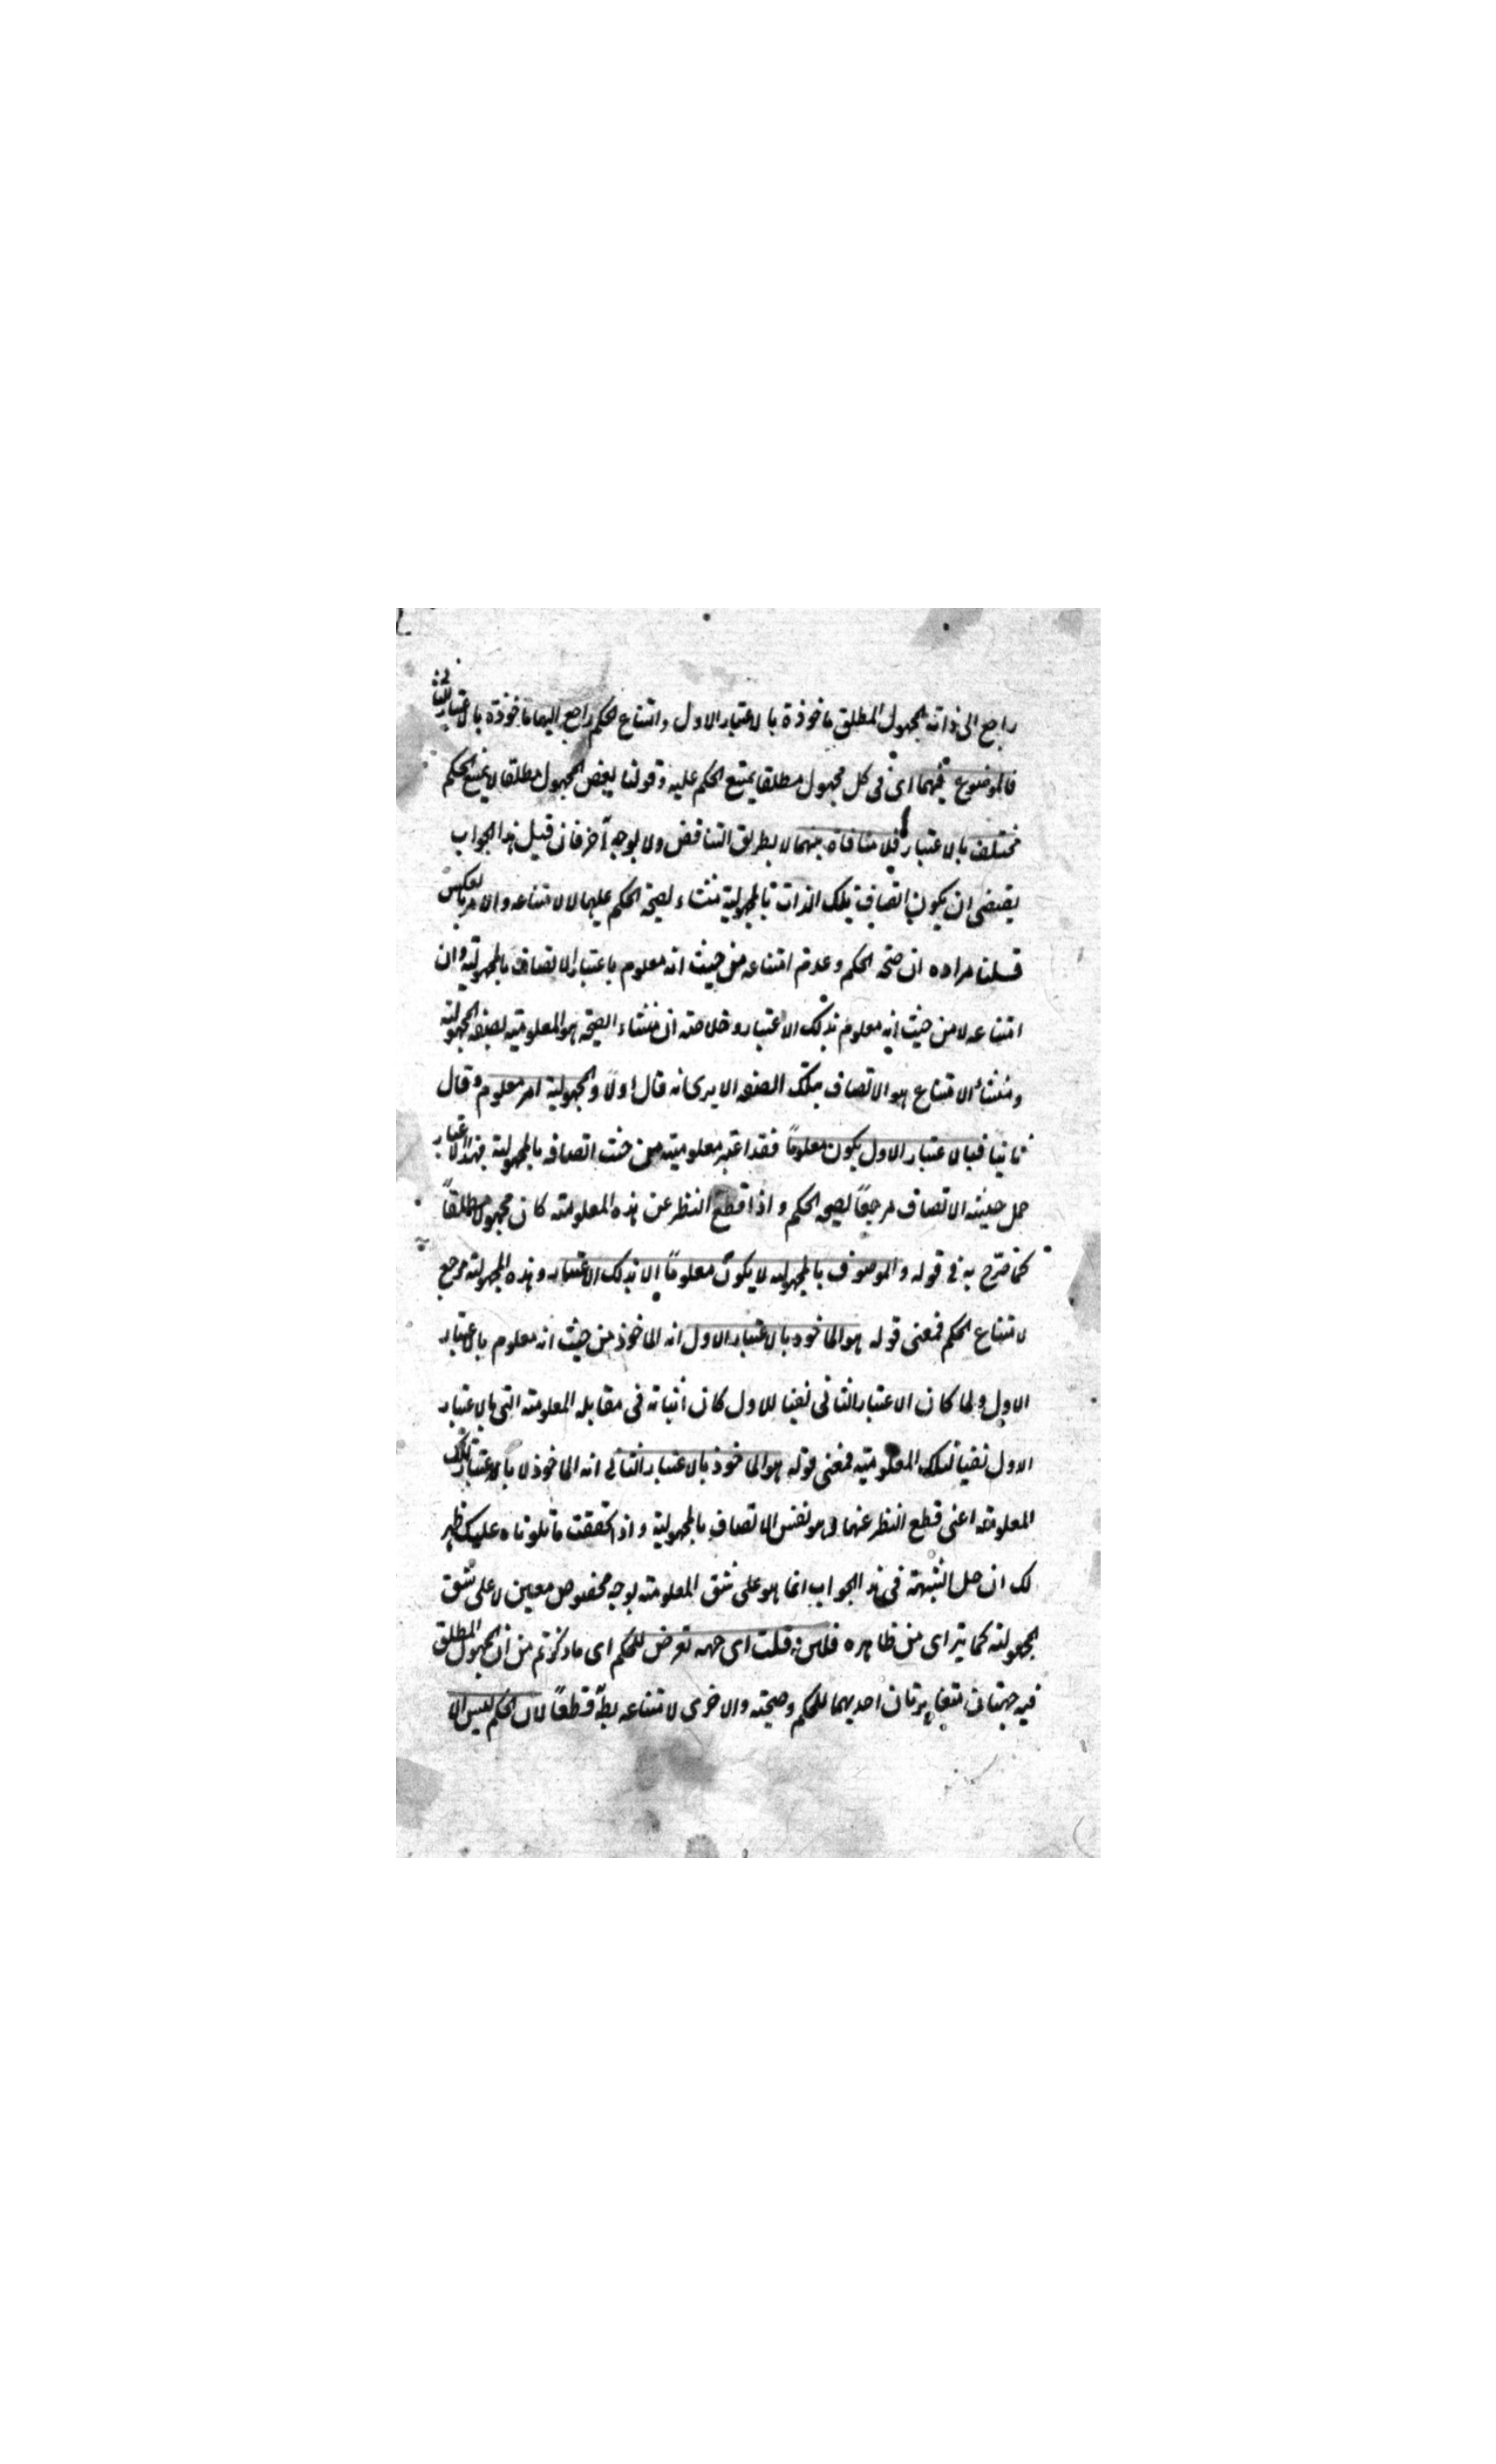 راجع الى ذات المجهول المطلق ماخوذة بالاعتبار الاول وامتناع الحكم راجع اليها ماخوذة بالاعتبار الثانى
فالموضوع فيهما اى فى كل مجهول مطلقا يمتنع الحكم عليه وقولنا بعض المجهول مطلقا لا يمتنع الحكم
مختلف بالاعتبار فلا منافاة بينهما لا بطريق التناقض ولا بوجه آخر فان قيل هذا الجواب
يقتضى ان يكون اتصاف تلك الذات بالمجهولية منشاء لصحة الحكم عليها لا لامتناعه والامر بالعكس
قلنا مراده ان صحة الحكم وعدم امتناعه من حيث انه معلوم باعتبار الاتصاف بالمجهولية وان
امتناعه لا من حيث انه معلوم بذلك الاعتبار وخلاصته ان منشاء الصحة هو المعلومية بصفة المجهولية
ومنشأ الامتناع هو الاتصاف بتلك الصفة الا يرى انه قال اولا والمجهولية امر معلوم وقال
ثانيا فبالاعتبار الاول يكون معلوماً فقد اعتبر معلوميته من حيث اتصافه بالمجهولية فبهذا الاعتبار
جعل حيثية الاتصاف مرجعاً لصحة الحكم واذا قطع النظر عن هذه المعلومية كان مجهولا مطلقاً
كما صرّح به فى قوله والموصوف بالمجهولية لا يكون معلوماً الا بذلك الاعتبار وهذه المجهولية مرجع
لامتناع الحكم فمعنى قوله هو الماخوذ بالاعتبار الاول انه الماخوذ من حيث انه معلوم بالاعتبار
الاول ولما كان الاعتبار الثانى نفيا للاول كان اثباته فى مقابلة المعلومية التى بالاعتبار
الاول نفيا لتلك المعلومية فمعنى قوله هو الماخوذ بالاعتبار الثانى انه الماخوذ لا بالاعتبار تلك
المعلومية اعنى قطع النظر عنها وهو نفس الاتصاف بالمجهولية واذا تحققت ما تلوناه عليك ظهر
لك ان حل الشبهة فى هذا الجواب انما هو على شق المعلومية بوجه مخصوص معين لا على شق
المجهولية كما يتراى من ظاهره فلئن قلت اى جهة تعرض للحكم اى ما ذكرتم من ان المجهول المطلق
فيه جهتان متغايرتان احديهما للحكم وصحته والاخرى لامتناعه قطعاً لان الحكم ليس الا